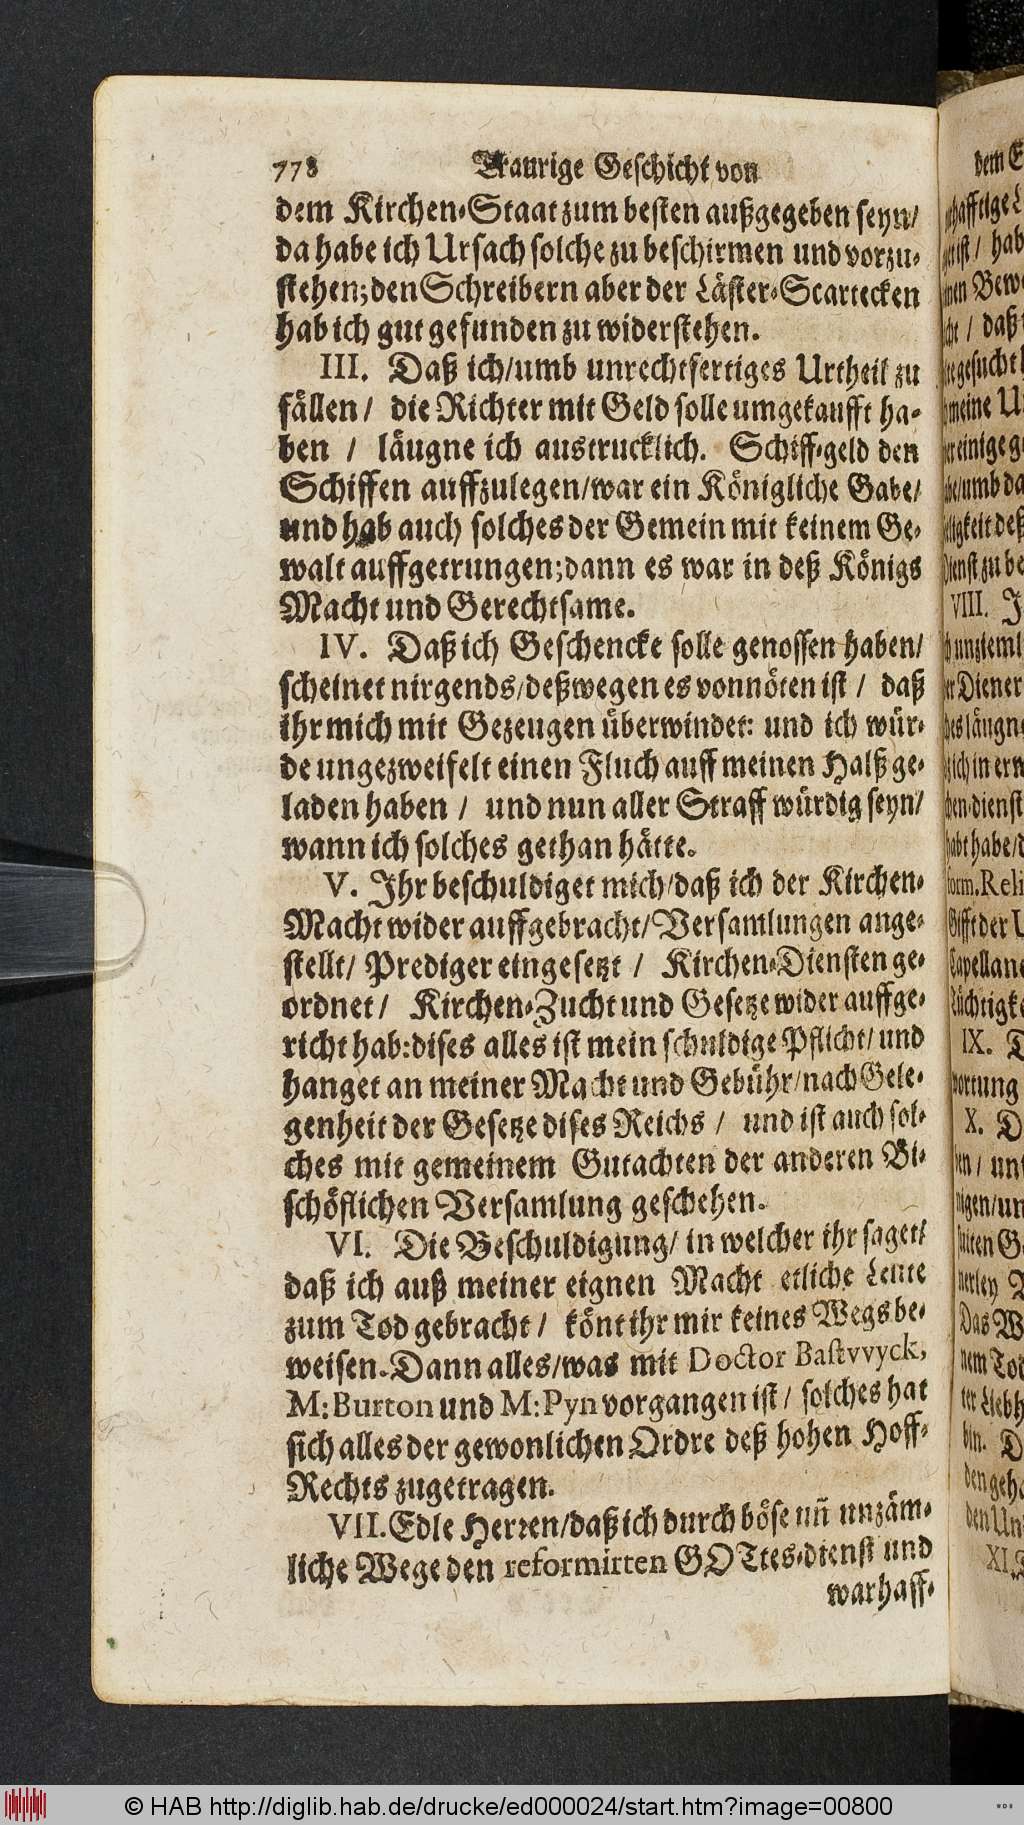 778 Traurige Geschicht von
dem Kirchen-Staat zum besten außgegeben seyn/
da habe ich Ursach solche zu beschirmen und vorzu-
stehen; den Schreibern aber der Läster-Scartecken
hab ich gut gefunden zu widerstehen.
III. Daß ich/umb unrechtfertiges Urtheil zu
fällen / die Richter mit Geld solle umgekaufft ha-
ben / läugne ich austrucklich. Schiff-geld den
Schiffen auffzulegen/war ein Königliche Gabe/
und hab auch solches der Gemein mit keinem Ge-
walt auffgetrungen; dann es war in deß Königs
Macht und Gerechtsame.
IV. Daß ich Geschencke solle genossen haben/
scheinet nirgends/deßwegen es vonnöten ist / daß
ihr mich mit Gezeugen überwindet: und ich wür-
de ungezweifelt einen Fluch auff meinen Halß ge-
laden haben / und nun aller Straff würdig seyn/
wann ich solches gethan hätte.
V. Ihr beschuldiget mich/daß ich der Kirchen-
Macht wider auffgebracht/Versamlungen ange-
stellt/ Prediger eingesetzt / Kirchen-Diensten ge-
ordnet / Kirchen-Zucht und Gesetze wider auffge-
richt hab: dises alles ist mein schuldige Pflicht/ und
hanget an meiner Macht und Gebühr/nach Gele-
genheit der Gesetze dises Reichs / und ist auch sol-
ches mit gemeinem Gutachten der anderen Bi-
schöflichen Versamlung geschehen.
VI. Die Beschuldigung/ in welcher ihr saget/
daß ich auß meiner eignen Macht etliche Leute
zum Tod gebracht / könt ihr mir keines Wegs be-
weisen. Dann alles/was mit Doctor Bastvvyck,
M: Burton und M: Pyn vorgangen ist / solches hat
sich alles der gewonlichen Ordre deß hohen Hoff-
Rechts zugetragen.
VII. Edle Herren/daß ich durch böse uñ unzäm-
liche Wege den reformirten GOTtes-dienst und
warhaff-
© HAB http://diglib.hab.de/drucke/ed000024/start.htm?image=00800